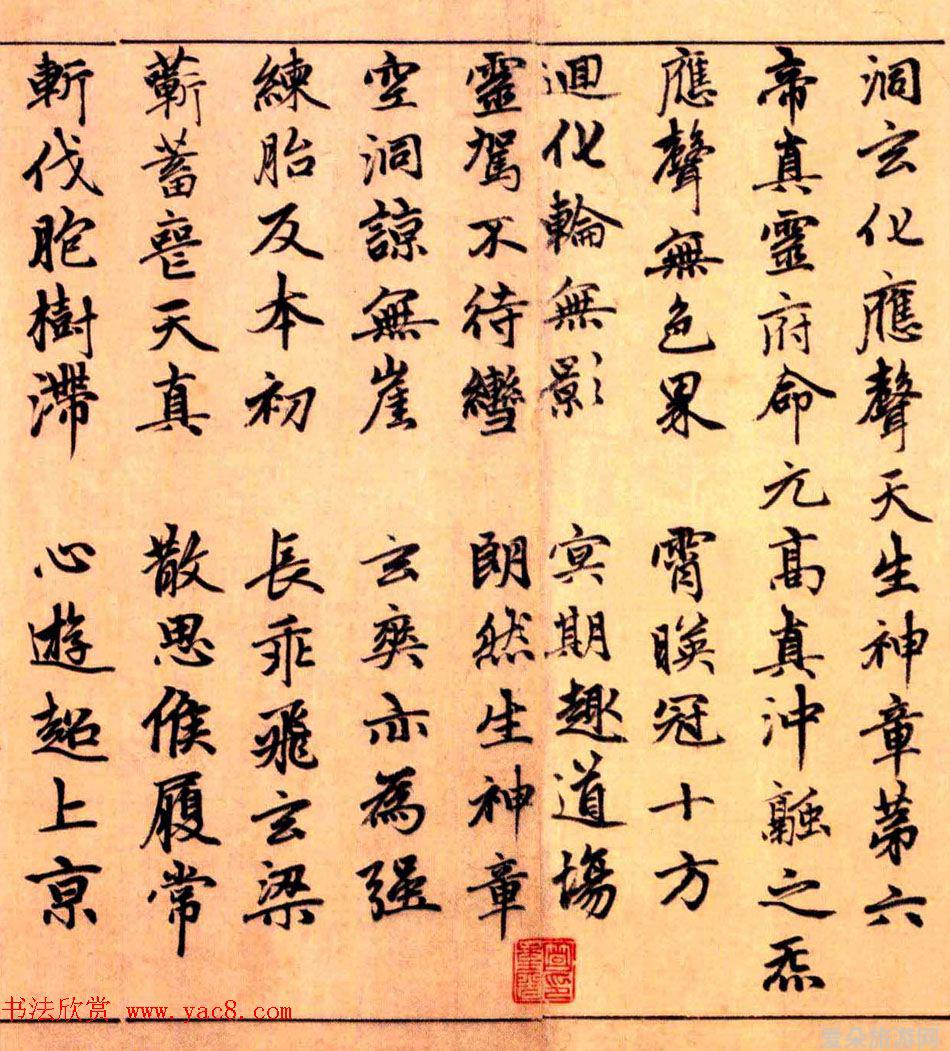 洞玄化應聲天生神章第六
帝真靈府命元高真沖融之炁
應聲無色界 霄暎冠十方
迴化輪無影 冥期趣道場
靈駕不待轡 朗然生神章
空洞諒無崖 玄奕亦為强
練胎反本初 長乘飛玄梁
蘄蓄喪天真 散思候履常
斬伐胞樹滯 心遊超上亰
书法欣赏 www.yac8.com